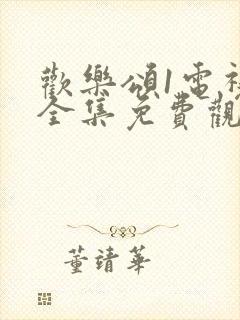 歡樂頌1電視
全集免費觀
董靖華